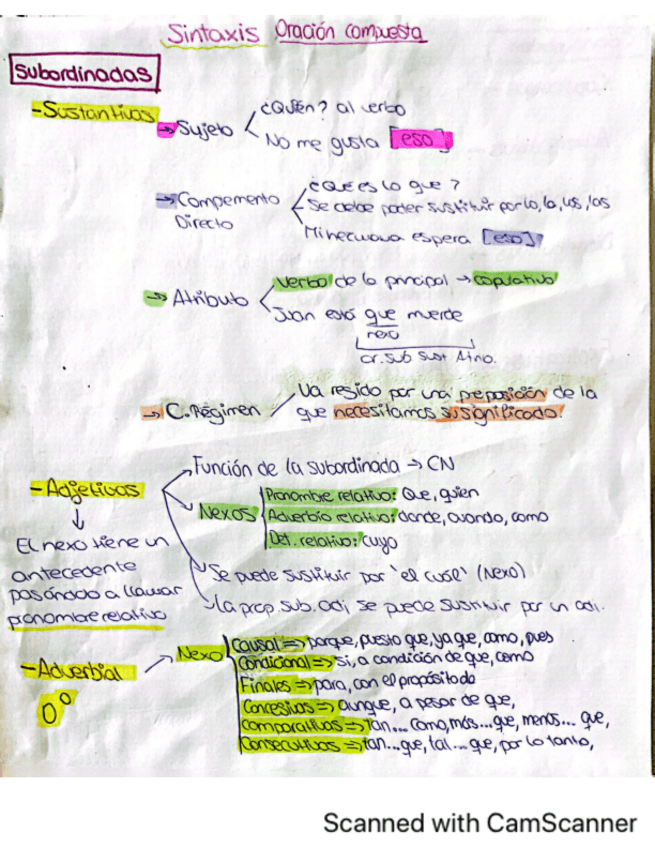 Sintaxis Oración compuesta
Subordinadas
- Sustantivas
→ Sujeto
¿Quién? al verbo
No me gusta [eso]
→ Compemento Directo
¿Qué es lo que?
Se debe poder sustituir por lo, la, los, las
espera [eso]
→ Atributo
Verbo de la principal → copulativo
Juan está que muerde
nexo
Or. Sub Sust Atrib.
→ C. Régimen
Va regido por una preposición de la
que necesitamos su significado.
- Adjetivas
Función de la subordinada → CN
Nexos
Pronombre relativo: Que, quien
Adverbio relativo: donde, cuando, como
Det. relativo: cuyo
↓
El nexo tiene un
antecedente
pasando a llamar
pronombre relativo
Se puede sustituir por 'el cual' (Nexo)
La prop. sub. adj. se puede sustituir por un adj.
- Adverbial
→ Nexo
Causal => porque, puesto que, ya que, como, pues
Condicional => si, a condición de que, como
Finales => para, con el propósito de
Concesivas => aunque, a pesar de que,
Comparativas => Tan... como, más... que, menos... que,
Consecutivas => tan... que, tal... que, por lo tanto,
Scanned with CamScanner